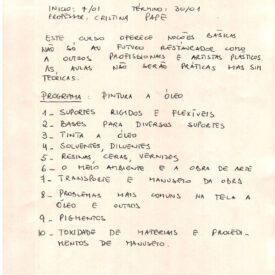 INÍCIO: 7/01 TÉRMINO: 30/01
PROFESSOR: CRISTINA PAPE
ESTE CURSO OFERECE NOÇÕES BÁSICAS
NÃO SÓ AO FUTURO RESTAURADOR COMO
A OUTROS PROFISSIONAIS E ARTISTAS PLASTICOS.
AS AULAS NÃO SERÃO PRÁTICAS MAS SIM
TEÓRICAS.
PROGRAMA: PINTURA A ÓLEO
1_ SUPORTES RIGIDOS E FLEXÍVEIS
2_ BASES PARA DIVERSOS SUPORTES
3_ TINTA A ÓLEO
4_ SOLVENTES, DILUENTES
5_ RESINAS, CERAS, VERNIZES
6_ O MEIO AMBIENTE E A OBRA DE ARTE
7_ TRANSPORTE E MANUSEIO DA OBRA
8_ PROBLEMAS MAIS COMUNS NA TELA A
ÓLEO E OUTROS
9_ PIGMENTOS
10_ TOXIDADE DE MATERIAIS E PROCEDI-
MENTOS DE MANUSEIO.